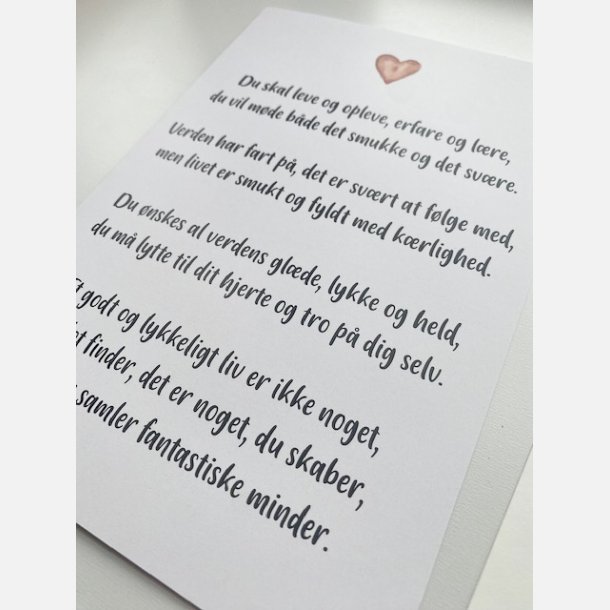 Du skal leve og opleve, erfare og lære,
du vil møde både det smukke og det svære.
Verden har fart på, det er svært at følge med,
men livet er smukt og fyldt med kærlighed.
Du ønskes al verdens glæde, lykke og held,
du må lytte til dit hjerte og tro på dig selv.
godt og lykkeligt liv er ikke noget,
finder, det er noget, du skaber,
samler fantastiske minder.